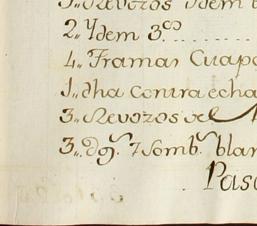 3,, Revozos Ydem
2,, Ydem 3.os
4,, Framas Cuapa
1,, dha contraecha
3,, Revozos del
3,, Dos. 7 Somb.s blan
Pasa